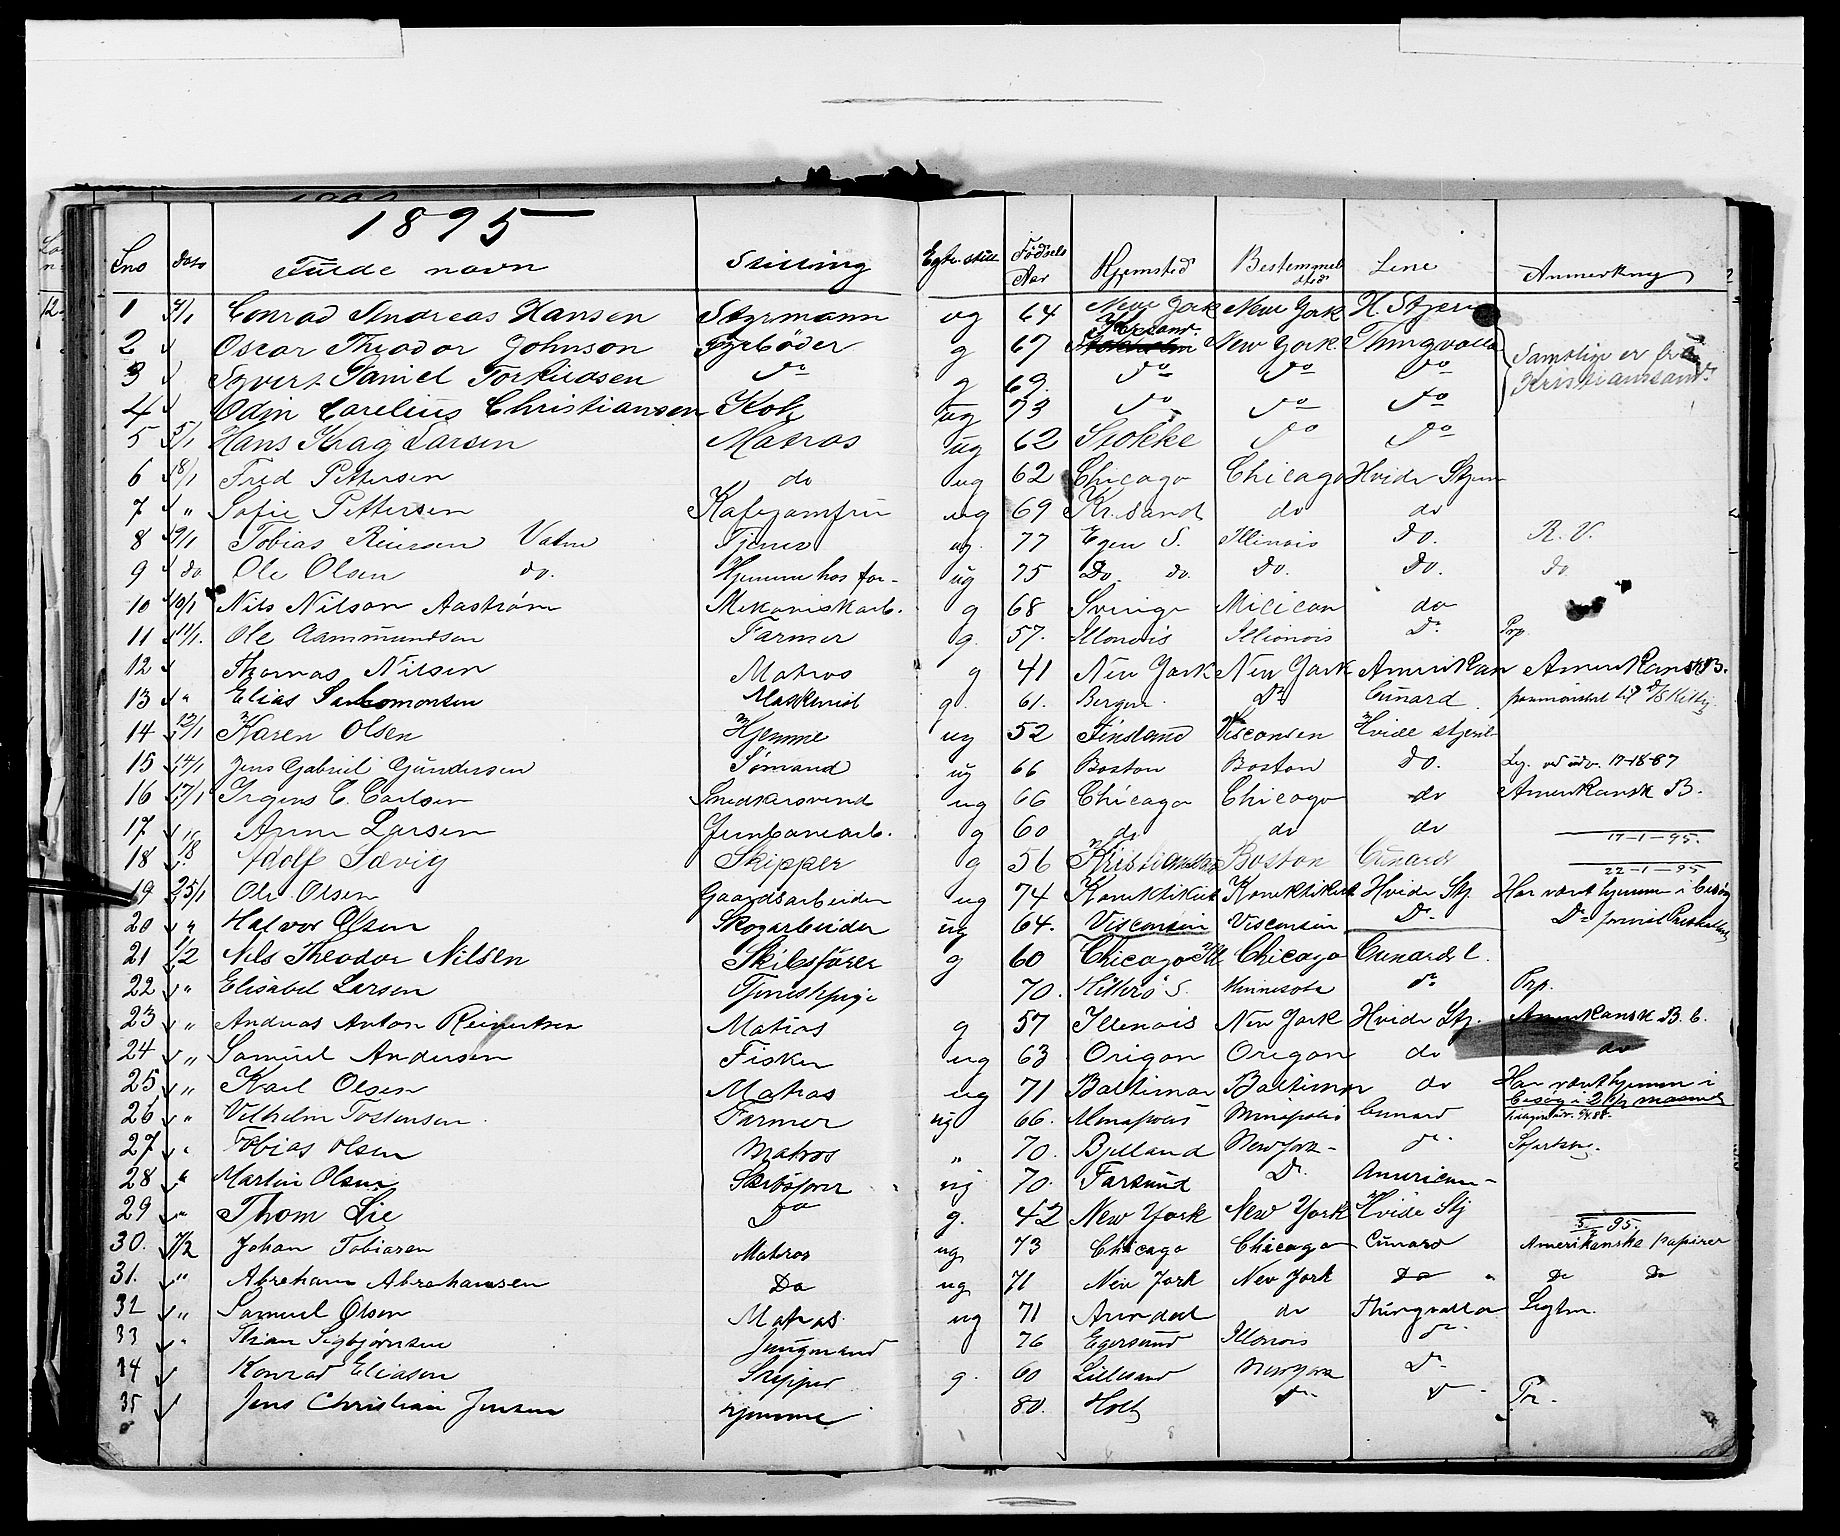 1895
Lno dato Fulde navn Stilling Egte. still Fødsels Aar Hjemsted Bestemmels sted Line Anmerkning
1 4/1 Conrad Andreas Hansen Styrmann ug 64 New York New York H. Stjern
2 Oscar Theodor Johnson Fyrbøder g 67 Kr.sand. New York. Thingvalla Samtlige er fra Kristianssand.
3 Syvert Daniel Torkildsen do g 69. do do do
4 Odin Carelius Christiansen Kok ug 73 do do do
5 5/1 Hans Krag Larsen Matros ug 62 Stokke do do
6 8/1 Fred Pettersen do ug 62 Chicago Chicago Hvide Stjern
7 " Sofie Pettersen Kafejomfru ug 69 Kr.sand do do
8 9/1 Tobias Reiersen Vatne Tjener ug. 77 Egen S. Illinois Do. R. V.
9 do Ole Olsen do. Hjemme hos for- ug 75 Do. do. Do. Do. do
10 10/1 Nils Nilson Aastrøm Mekaniskarb. g 68 Sverige Micican do
11 11/1. Ole Aammundsen Farmer g. 57. Illonois Illionois Do Prp.
12 Thomas Nilsen Matros g 41 New York New York Amerikan Amerikansk B.
13 " Elias Salomonsen Maskenist g. 61. Bergen Do Cunard
14 12/1 Karen Olsen Hjemme ug 52 Finsland Visconsen Hvide stjerne
15 14/1 Jens Gabriel Gundersen Sømand ug 66 Boston Boston Do. Lej. ved udv. 17-18-87
16 17/1 Irgens C. Carlsen Snedkersvend ug 66 Chicago Chicago do Amerikansk B.
17 Anne Larsen Jernbanearb. g 60 do do do 17-1-95.
18 18 Adolf Sævig Skipper g 56 Kristianssand Boston Cunard 22-1-95
19 25/1 Ole Olsen Gaardsarbeider ug 74 Konektikut Konektikut Hvide Stj. Har været hjemme i besøg
20 " Halvor Olsen Skogarbeider ug 64. Visconsin Visconsin Do Do
21 1/2 Nils Theodor Nilsen Skibsfører g 60 Chicago Ill Chicago Cunard l.
22 " Elisabet Larsen Tjenestepige 70. Hitterø S. Minnesota do Prp.
23 " Andreas Anton Reinertsen Matros g 57 Illenois New York Hvide Stj. Amerikansk B. b.
24 " Samuel Andersen Fisker ug 63 Origon Oregon do do
25 " Karl Olsen Matros ug 71 Baltimor Baltimor do Har været hjemme i besøg i 2 maaned
26 " Vilhelm Tostensen Farmer ug 66. Menapolis Minapolis Cunard
27 " Tobias Olsen Matros " 70. Bjelland New York - do Søfartsb.
28 " Martin Olsen Skibsfører ug 70. Farsund Do. American -
29 " Thom Lie Do g. 42 New York New York Hvide Stj 5/2 95.
30. 7/2 Johan Tobiasen Matros ug 73 Chicago Chicago Cunard Amerikanske papirer
31. " Abraham Abrahamsen Do ug 71 New York New York Do " Do Do
32 " Samuel Olsen Matros. ug 71 Arendal do Thingvalla Legtm.
33 " Sigbjørnsen Jungmand 76 Egersund Illonois do
34 Konrad Eliasen Skipper g. 60 Lillesand New York Do
35 Jens Christian Jensen hjemme 80. Holt do do - Pr.